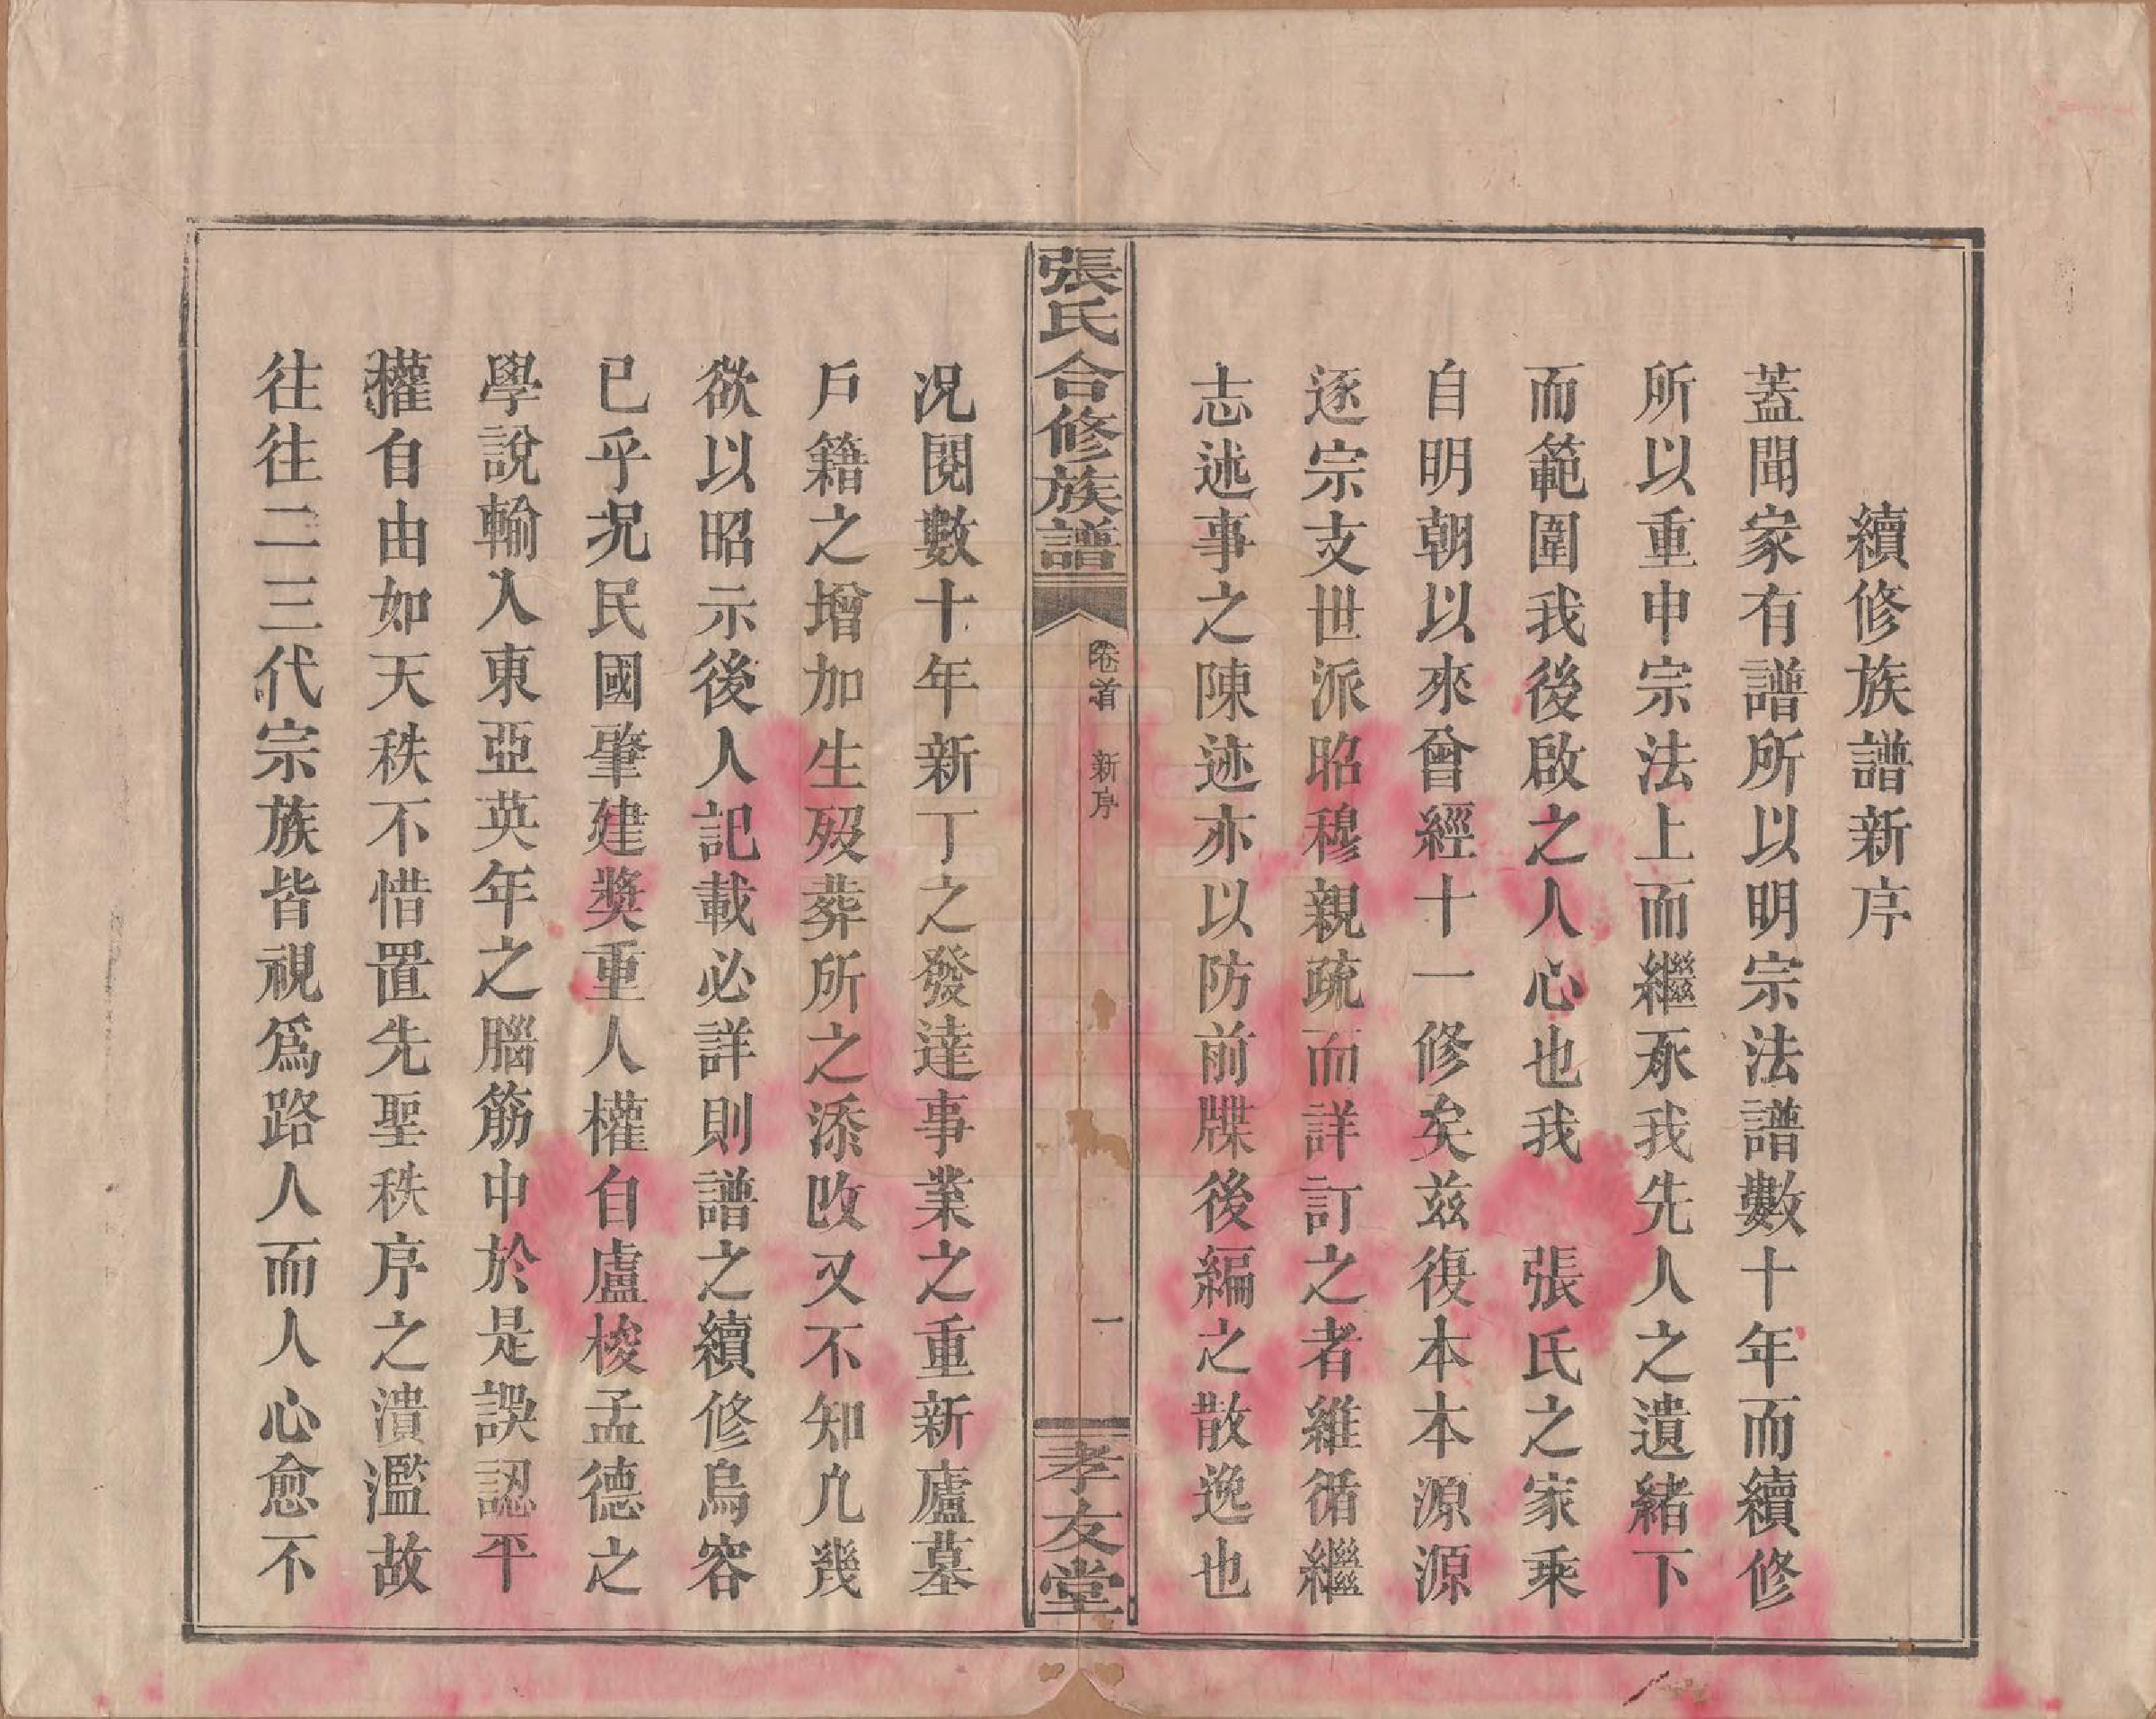 續修族譜新序
蓋聞家有譜所以明宗法譜數十年而續修
所以重申宗法上而繼承我先人之遺緒下
而範圍我後啟之人心也我　張氏之家乘
自明朝以來曾經十一修矣茲復本本源源
逐宗支世派昭穆親疏而詳訂之者維循繼
志述事之陳迹亦以防前牒後編之散逸也
張氏合修族譜
卷首　新序
一
孝友堂
況閱數十年新丁之發達事業之重新廬墓
戶籍之增加生歿葬所之添改又不知凢幾
欲以昭示後人記載必詳則譜之續修烏容
已乎况民國肇建獎重人權自盧梭孟德之
學說輸入東亞英年之腦筋中於是誤認平
權自由如天秩不惜置先聖秩序之潰濫故
往往二三代宗族皆視爲路人而人心愈不